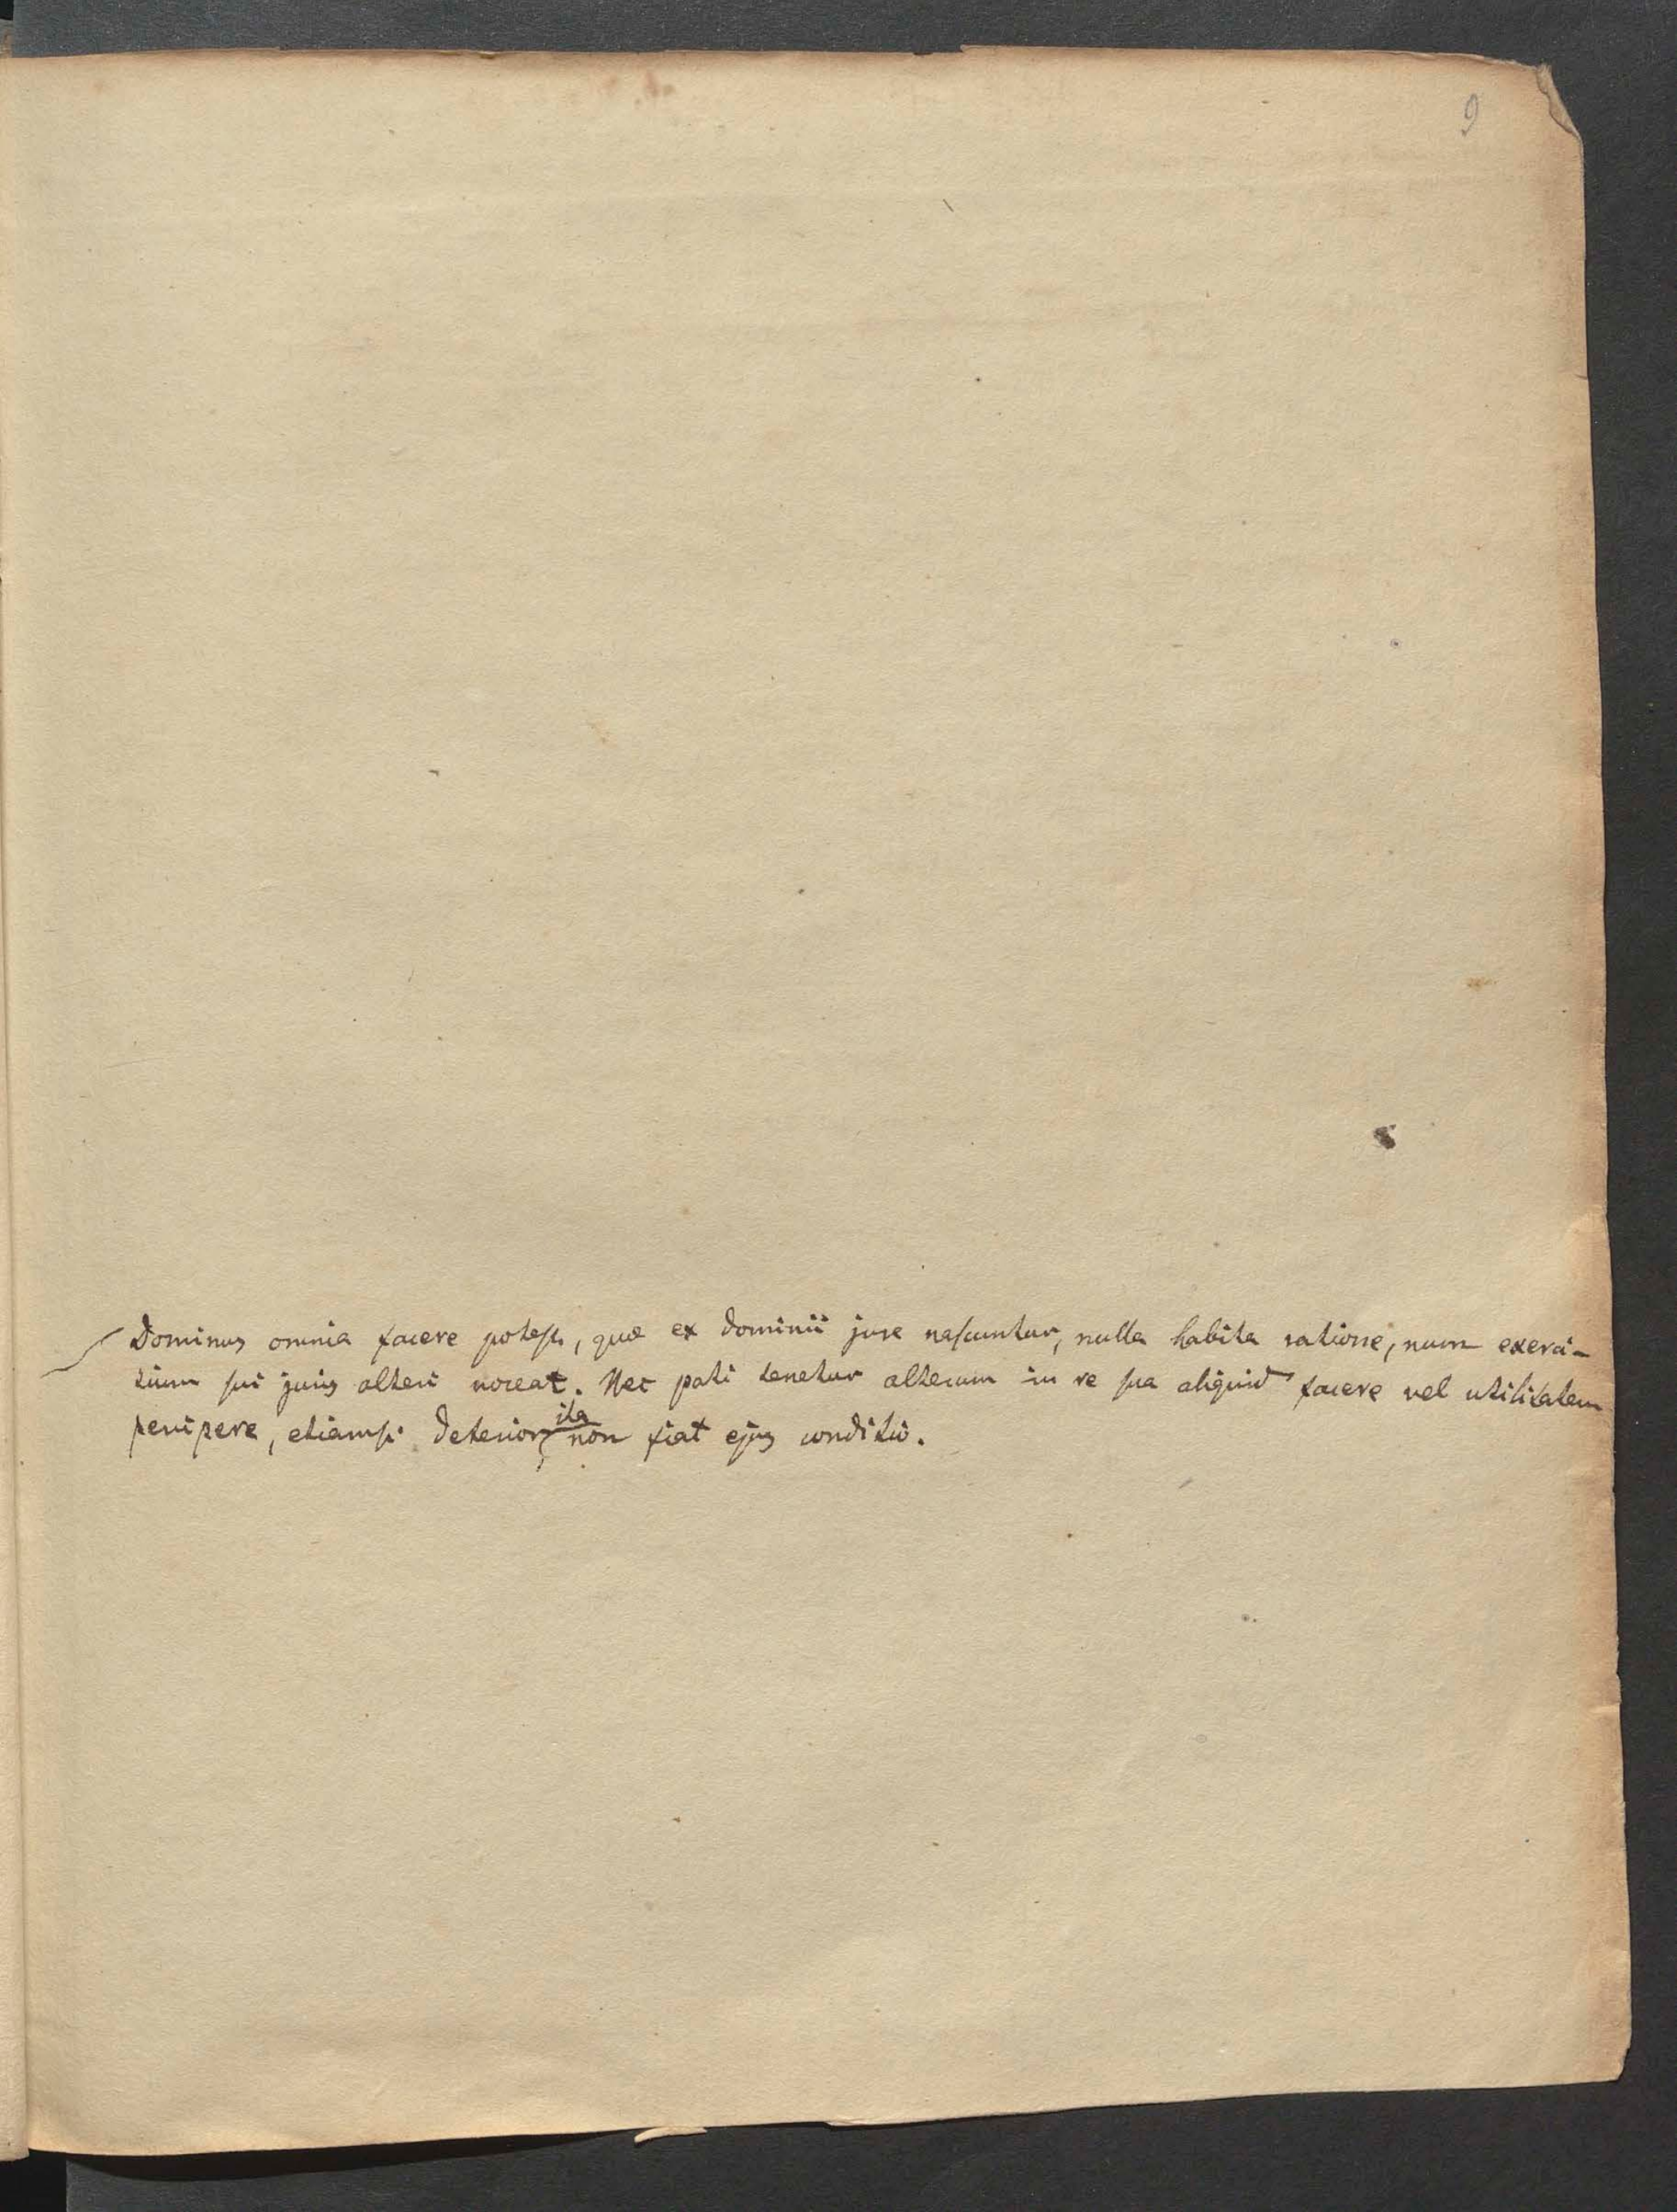 9
Dominus omnia facere potest, quæ ex dominii jure nascuntur, nulla habita ratione, num exerci-
tium sui juris alteri noceat. Nec pati tenetur alterum in re sua aliquid facere vel utilitatem
percipere, etiamsi deterior ita non fiat ejus conditio.